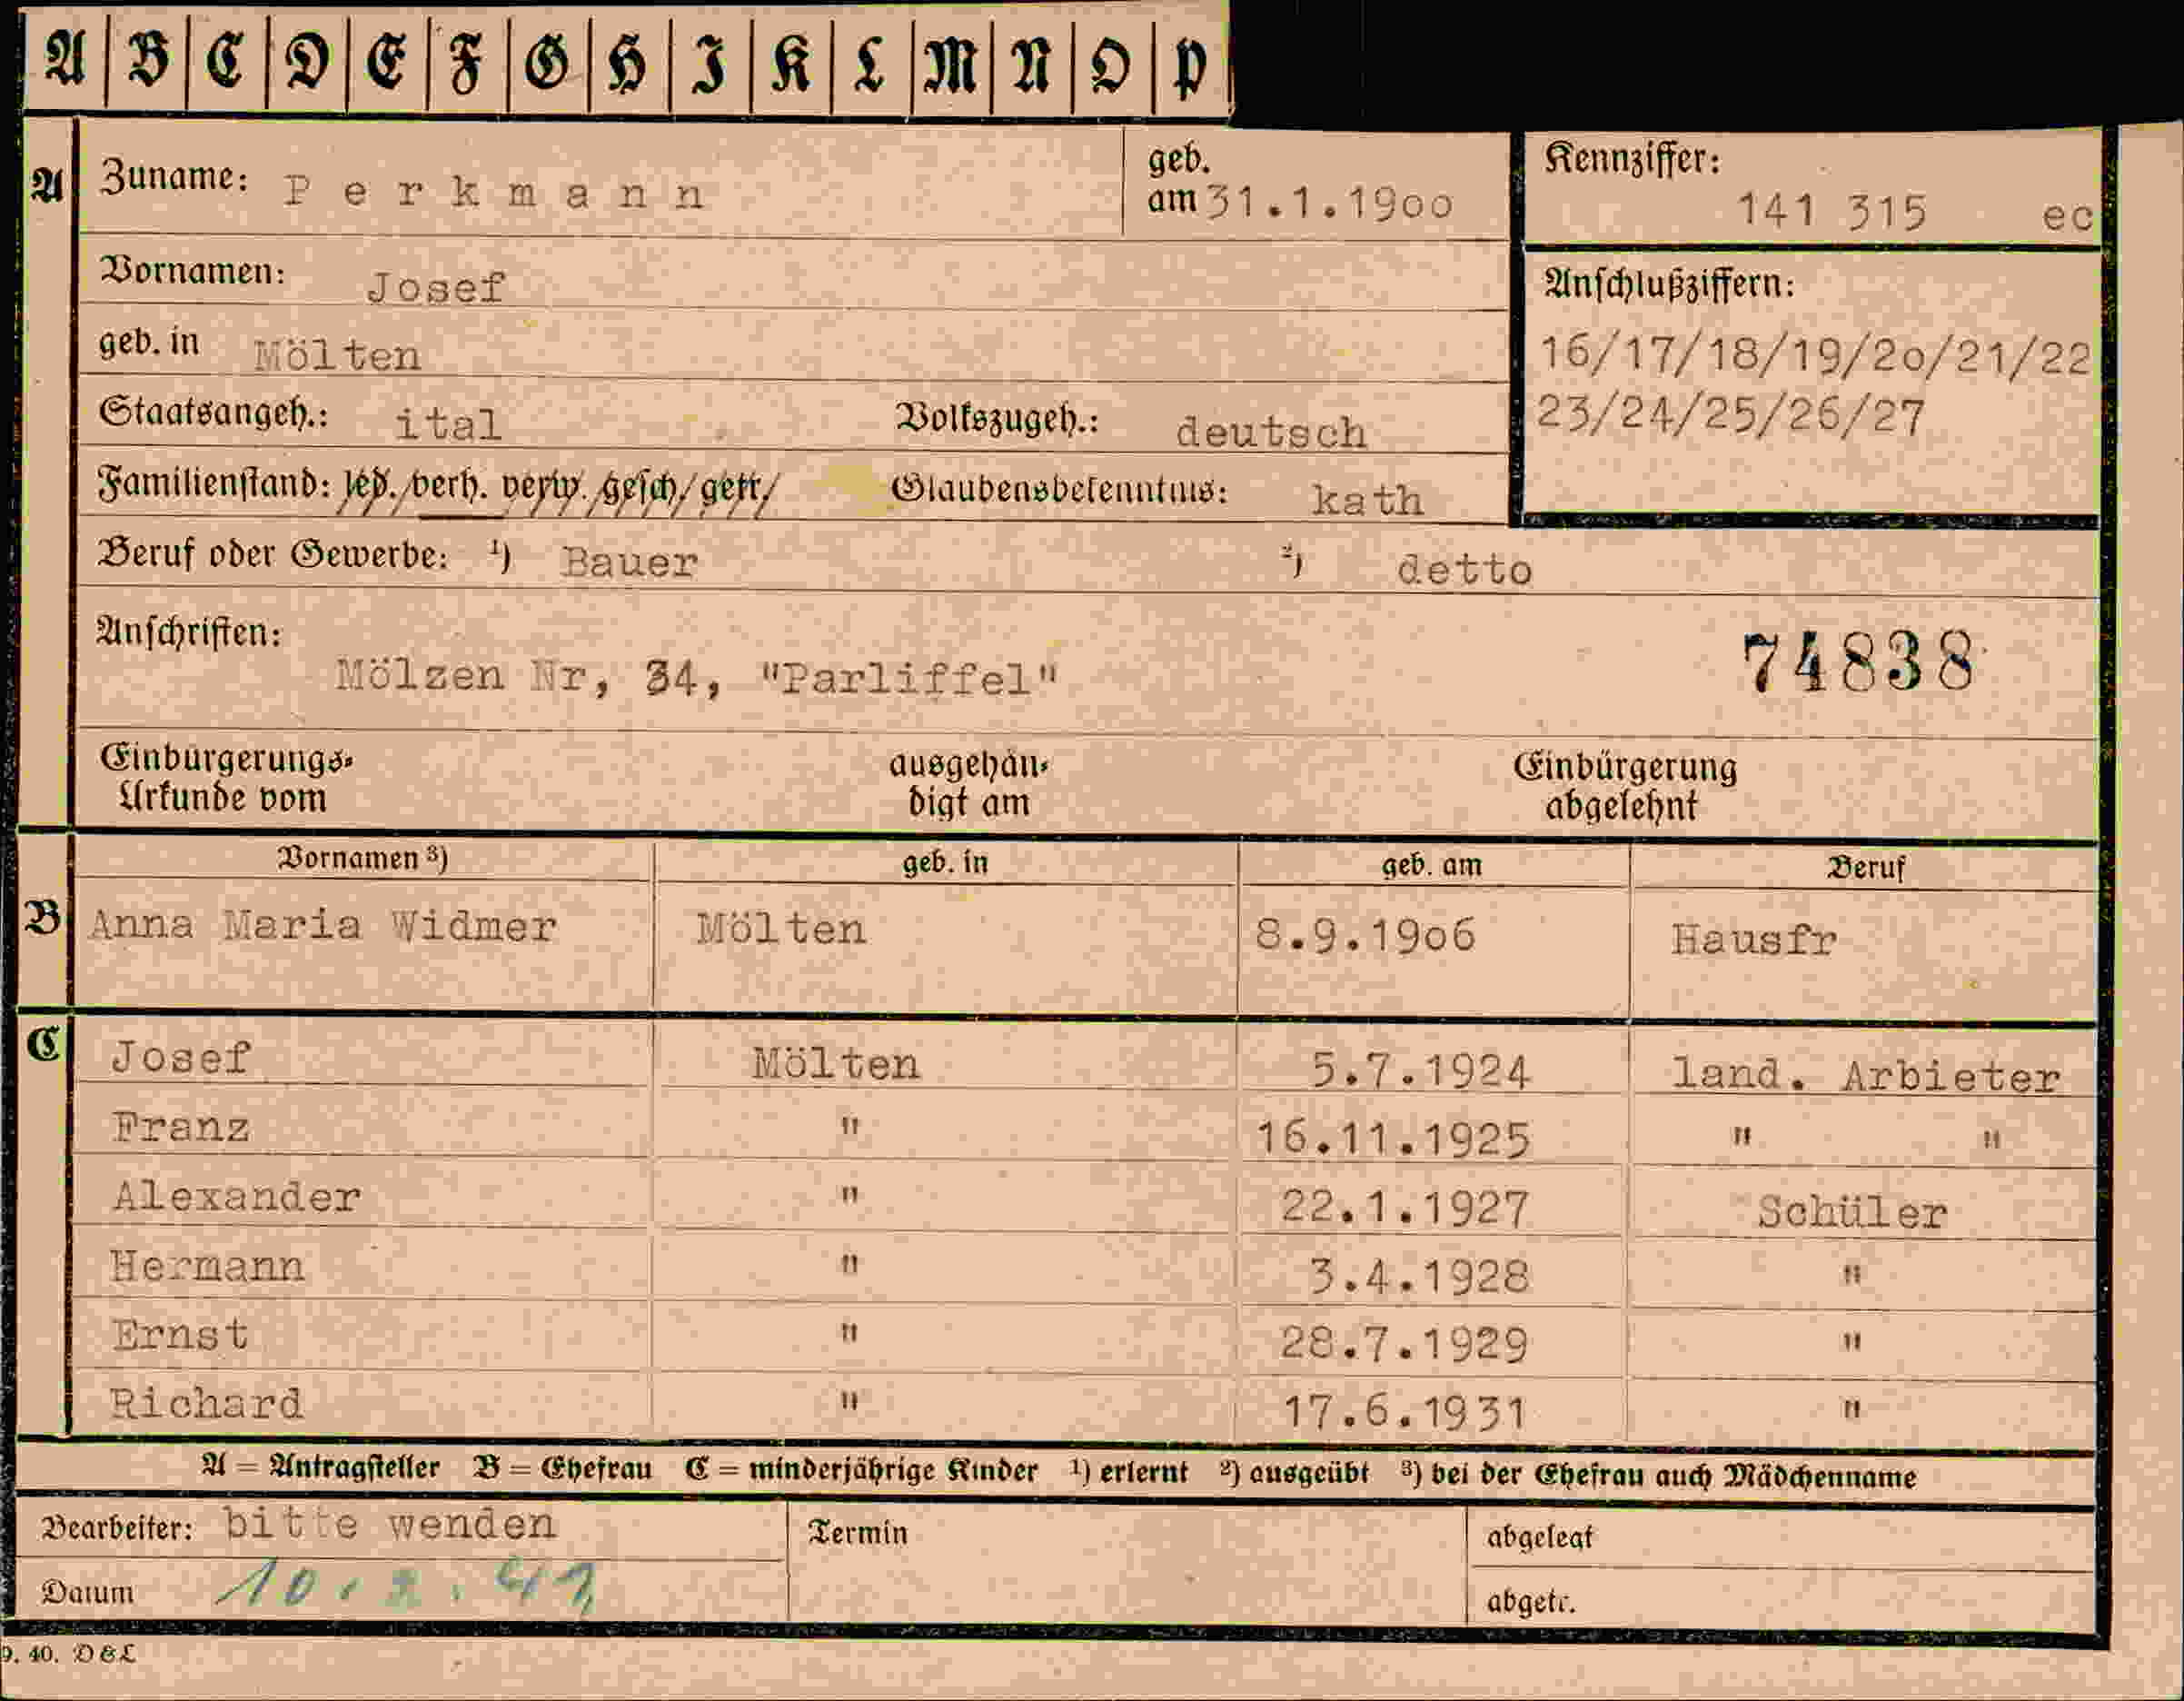 A B C D E F G H I K L M N O P
A Zuname: Perkmann geb. am 31.1.1900 Kennziffer: 141 315 ec
Vornamen: Josef Anschlußziffern:
geb. in Mölten 16/17/18/19/20/21/22
Staatsangeh.: ital Volkszugeh.: deutsch 23/24/25/26/27
Familienstand: led. verh. verw. gesch. getr. Glaubensbekenntnis: kath
Beruf oder Gewerbe: ¹) Bauer ²) detto
Anschriften:
Mölzen Nr, 34, "Parliffel" 74838
Einbürgerungs- ausgehän- Einbürgerung
Urkunde vom digt am abgelehnt
Vornamen ³) geb. in geb. am Beruf
B Anna Maria Widmer Mölten 8.9.1906 Hausfr
C Josef Mölten 5.7.1924 land. Arbieter
Franz " 16.11.1925 " "
Alexander " 22.1.1927 Schüler
Hermann " 3.4.1928 "
Ernst " 28.7.1929 "
Richard " 17.6.1931 "
A = Antragsteller B = Ehefrau C = minderjährige Kinder ¹) erlernt ²) ausgeübt ³) bei der Ehefrau auch Mädchenname
Bearbeiter: bitte wenden Termin abgelegt
Datum abgetr.
40. D&L